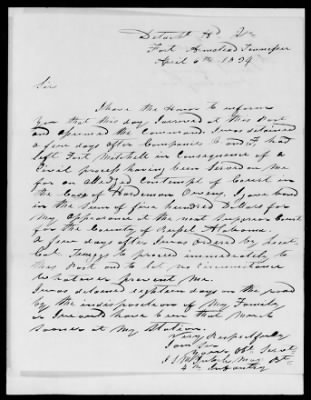 Detacht Hd Qrs
Fort Armstead Tennessee
April 6th 1834
Sir
I have the Honor to inform
you that this day I arrived at this Post
and assumed the Command. I was detained
a few days after Companies C and F had
left Fort Mitchell in Consequence of a
Civil process having been served on me
for an Alledged Contempt of Court in
the Case of Hardeman Owens, I gave bond
in the Sum of five hundred Dollars for
My Appearance at the next Superior Court
for the County of Russel Alabama.
A few days after I was ordered by Lieut.
Col. Twiggs to proceed immediately to
this Post and to let no circumstance
whatever prevent me.
I was detained eighteen days on the road
by the indisposition of My Family
or I would have been that much
sooner at My Station.
Very Respectfully
I am Sir
Your Obt. Servt.
J. S. McIntosh Maj. Bt.
4th Infantry